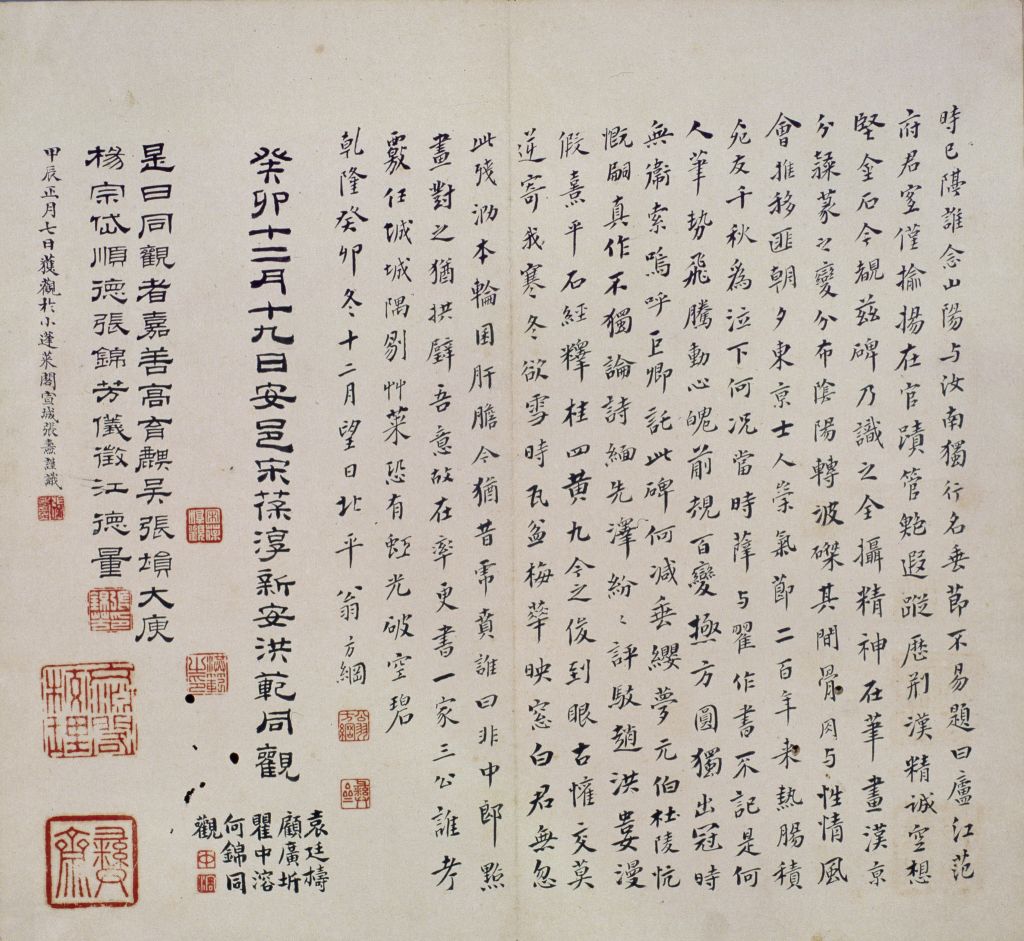 時已隔誰念山陽与汝南獨行名垂節不易題曰廬江范
府君室僅揄揚在官蹟管鮑遐蹤歷荊漢精誠空想
堅金石今覩茲碑乃識之全攝精神在筆畫漢京
分隸篆之變分布陰陽轉波磔其間骨肉与性情風
會推移匪朝夕東京士人崇氣節二百年来熱腸積
死友千秋為泣下何况當時薛与翟作書不記是何
人筆勢飛騰動心魄前規百變極方圓獨出冠時
無衞索嗚呼巨卿託此碑何減垂纓夢元伯杜陵忼
慨嗣真作不獨論詩緬先澤紛〻評駁趙洪婁漫
假熹平石經釋桂四黄九今之俊到眼古懽交莫
逆寄我寒冬欲雪時瓦盆梅華映窓白君無忽
此殘泐本輪囷肝膽今猶昔帋賁誰曰非中郎點
畫對之猶拱璧吾意故在率更書一家三公誰考
覈任城城隅剔艸萊恐有虹光破空碧
乾隆癸卯冬十二月望日北平翁方綱
癸卯十二月十九日安邑宋葆淳新安洪範同觀
袁廷檮
顧廣圻
瞿中溶
何錦同
觀
是日同觀者嘉善高育麒吴張塤大庾
楊宗岱順德張錦芳儀徵江德量
甲辰正月七日獲觀於小蓬萊閣宣城張燾謹識